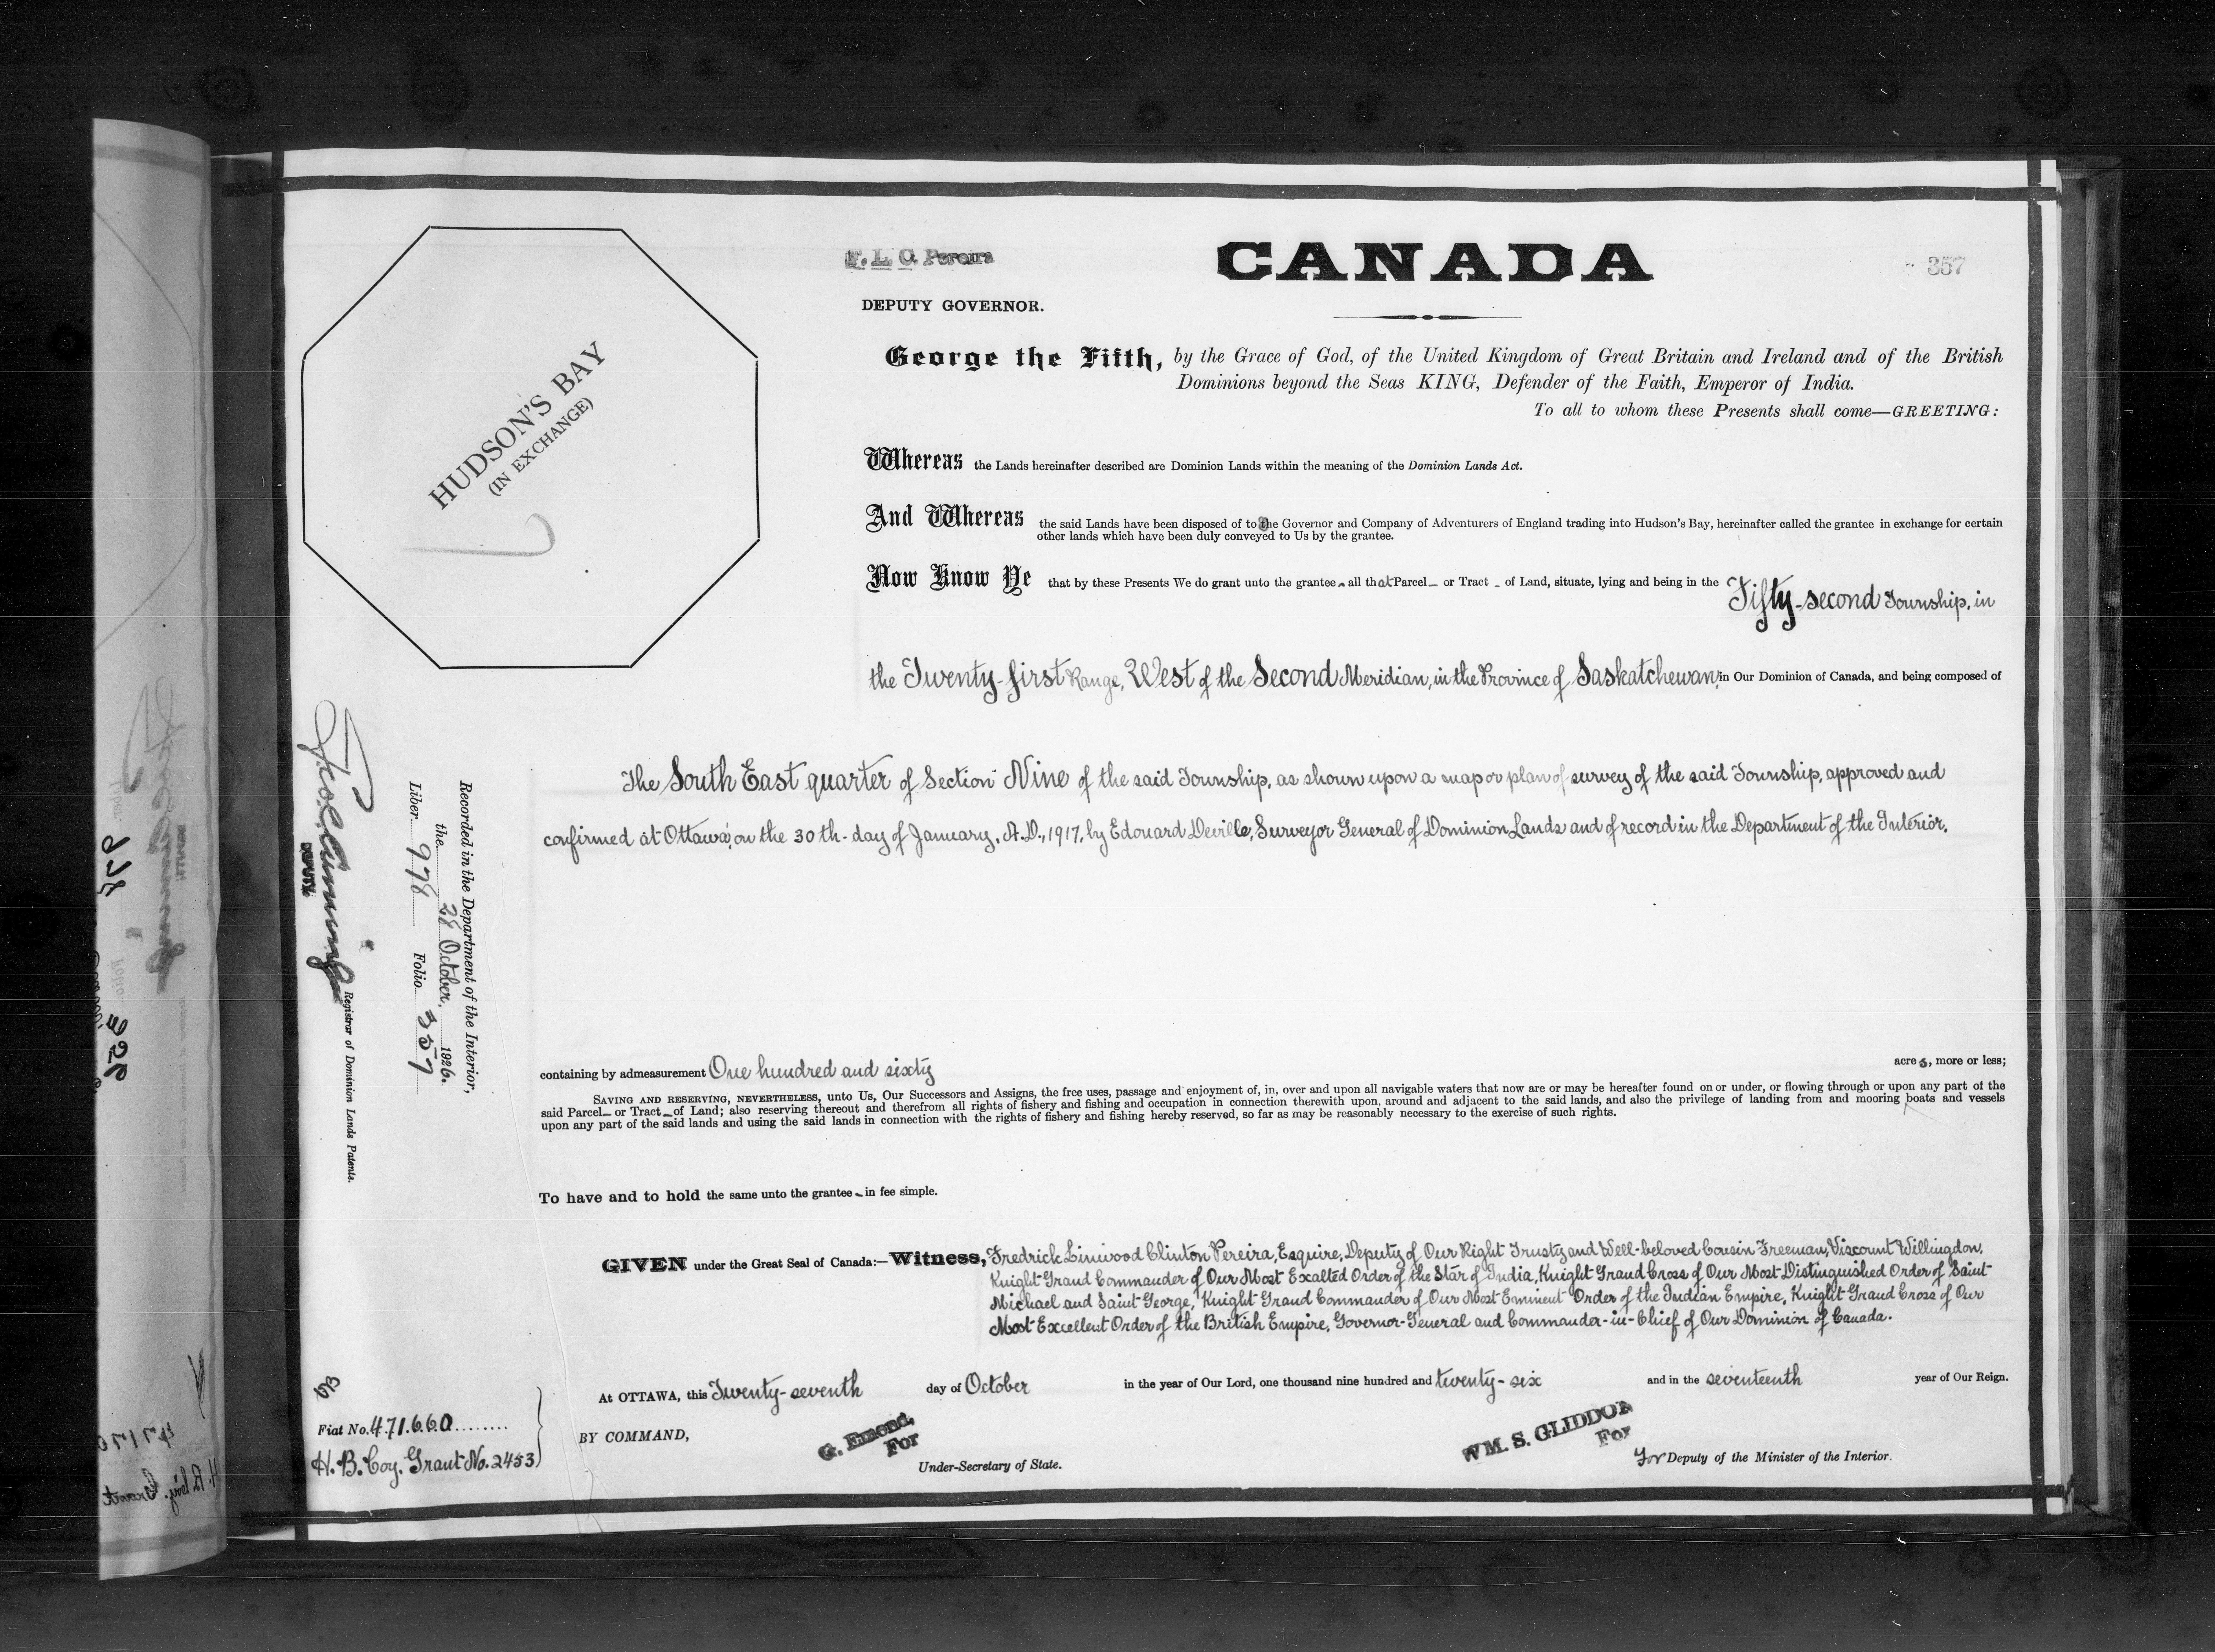 F. L. C. Pereira
CANADA
357
DEPUTY GOVERNOR.
George the Fifth, by the Grace of God, of the United Kingdom of Great Britain and Ireland and of the British
Dominions beyond the Seas KING, Defender of the Faith, Emperor of India.
To all to whom these Presents shall come—GREETING:
HUDSON'S BAY
(IN EXCHANGE)
Whereas the Lands hereinafter described are Dominion Lands within the meaning of the Dominion Lands Act.
And Whereas the said Lands have been disposed of to the Governor and Company of Adventurers of England trading into Hudson's Bay, hereinafter called the grantee in exchange for certain
other lands which have been duly conveyed to Us by the grantee.
Now Know Ye that by these Presents We do grant unto the grantee all that Parcel or Tract of Land, situate, lying and being in the Fifty-second Township, in
the Twenty-first Range, West of the Second Meridian, in the Province of Saskatchewan, in Our Dominion of Canada, and being composed of
The South East quarter of Section Nine of the said Township, as shown upon a map or plan of survey of the said Township, approved and
confirmed at Ottawa, on the 30th day of January, A.D., 1917, by Edouard Deville, Surveyor General of Dominion Lands and of record in the Department of the Interior.
containing by admeasurement One hundred and sixty acres, more or less;
SAVING AND RESERVING, NEVERTHELESS, unto Us, Our Successors and Assigns, the free uses, passage and enjoyment of, in, over and upon all navigable waters that now are or may be hereafter found on or under, or flowing through or upon any part of the
said Parcel or Tract of Land; also reserving thereout and therefrom all rights of fishery and fishing and occupation in connection therewith upon, around and adjacent to the said lands, and also the privilege of landing from and mooring boats and vessels
upon any part of the said lands and using the said lands in connection with the rights of fishery and fishing hereby reserved, so far as may be reasonably necessary to the exercise of such rights.
To have and to hold the same unto the grantee in fee simple.
GIVEN under the Great Seal of Canada:—Witness, Fredrick Linwood Clinton Pereira, Esquire, Deputy of Our Right Trusty and Well-beloved Cousin Freeman, Viscount Willingdon,
Knight Grand Commander of Our Most Exalted Order of the Star of India, Knight Grand Cross of Our Most Distinguished Order of Saint
Michael and Saint George, Knight Grand Commander of Our Most Eminent Order of the Indian Empire, Knight Grand Cross of Our
Most Excellent Order of the British Empire, Governor-General and Commander-in-Chief of Our Dominion of Canada.
At OTTAWA, this Twenty-seventh day of October in the year of Our Lord, one thousand nine hundred and twenty-six and in the seventeenth year of Our Reign.
BY COMMAND,
G. Emond,
For
Under-Secretary of State.
WM. S. GLIDDON
For
For Deputy of the Minister of the Interior.
Recorded in the Department of the Interior,
the 28 October, 1926.
Liber 978 Folio 357
DEPUTY
Registrar of Dominion Lands Patents.
Fiat No. 471660
H. B. Coy. Grant No. 2453